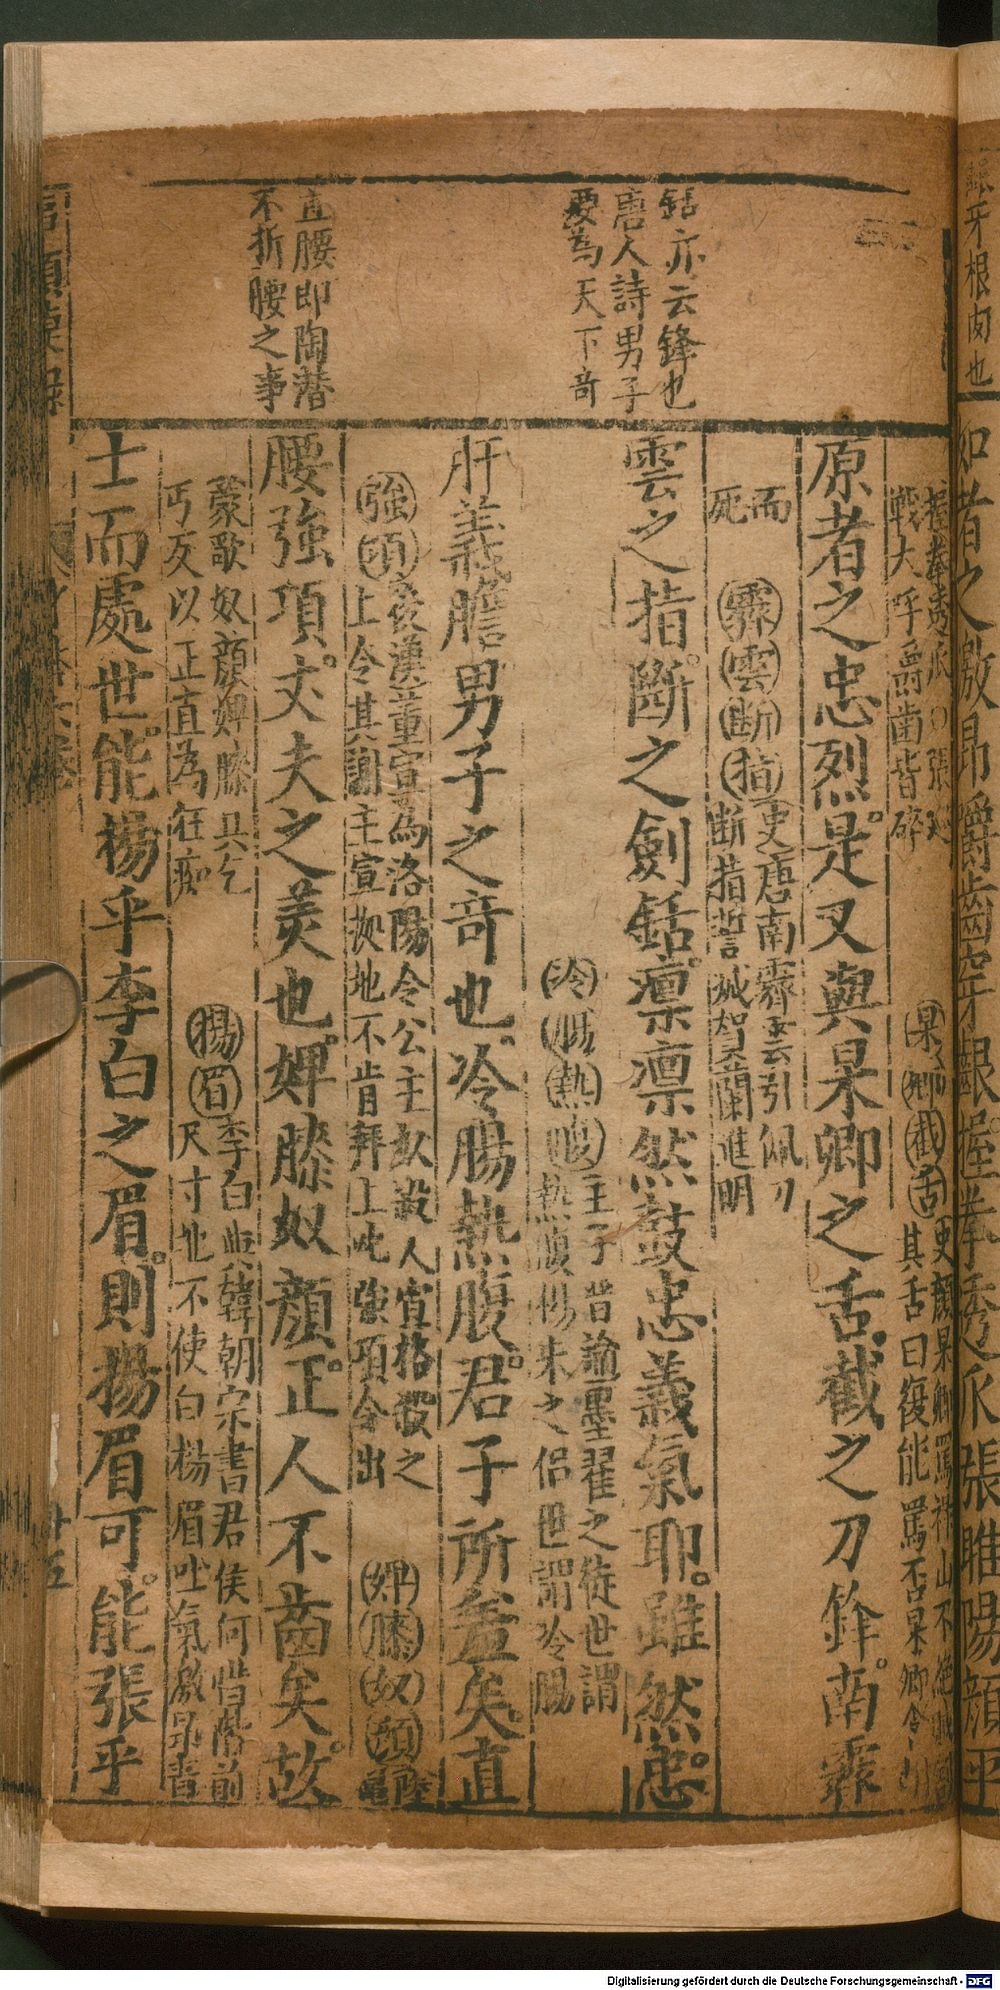 銛亦云鋒也
唐人詩男子
要為天下奇
直腰即陶潛
不折腰之事
如者之激昂嚼齒穿齦握拳透爪張睢陽顏平
握拳透爪○張巡
戰大呼齒皆碎
杲卿截舌史顏杲卿罵祿山不絕賊
其舌曰復能罵否杲卿含
原者之忠烈是又與杲卿之舌截之刀鋒南霽
而
死
霽雲斷指史唐南霽雲引佩刀
斷指誓滅賀蘭進明
雲之指斷之劍銛凛凛然鼓忠義氣耶雖然忠
冷腸熱腹王子昔論墨翟之徒世謂
熱腹楊朱之侶世謂冷腸
肝義膽男子之奇也冷腸熱腹君子所羞矣直
強項後漢董宣為洛陽令公主奴殺人宣格殺之
上令其謝主宣拠地不肯拜上叱強項令出
婢膝奴顏陸
龜
腰強項丈夫之美也婢膝奴顏正人不齒矣故
蒙歌奴顏婢膝真乞
丐反以正直為狂痴
揚眉李白與韓朝宗書君侯何惜階前
尺寸地不使白揚眉吐氣激昂青
士而處世能揚乎李白之眉則揚眉可能張乎
廿五
Digitalisierung gefördert durch die Deutsche Forschungsgemeinschaft - DFG